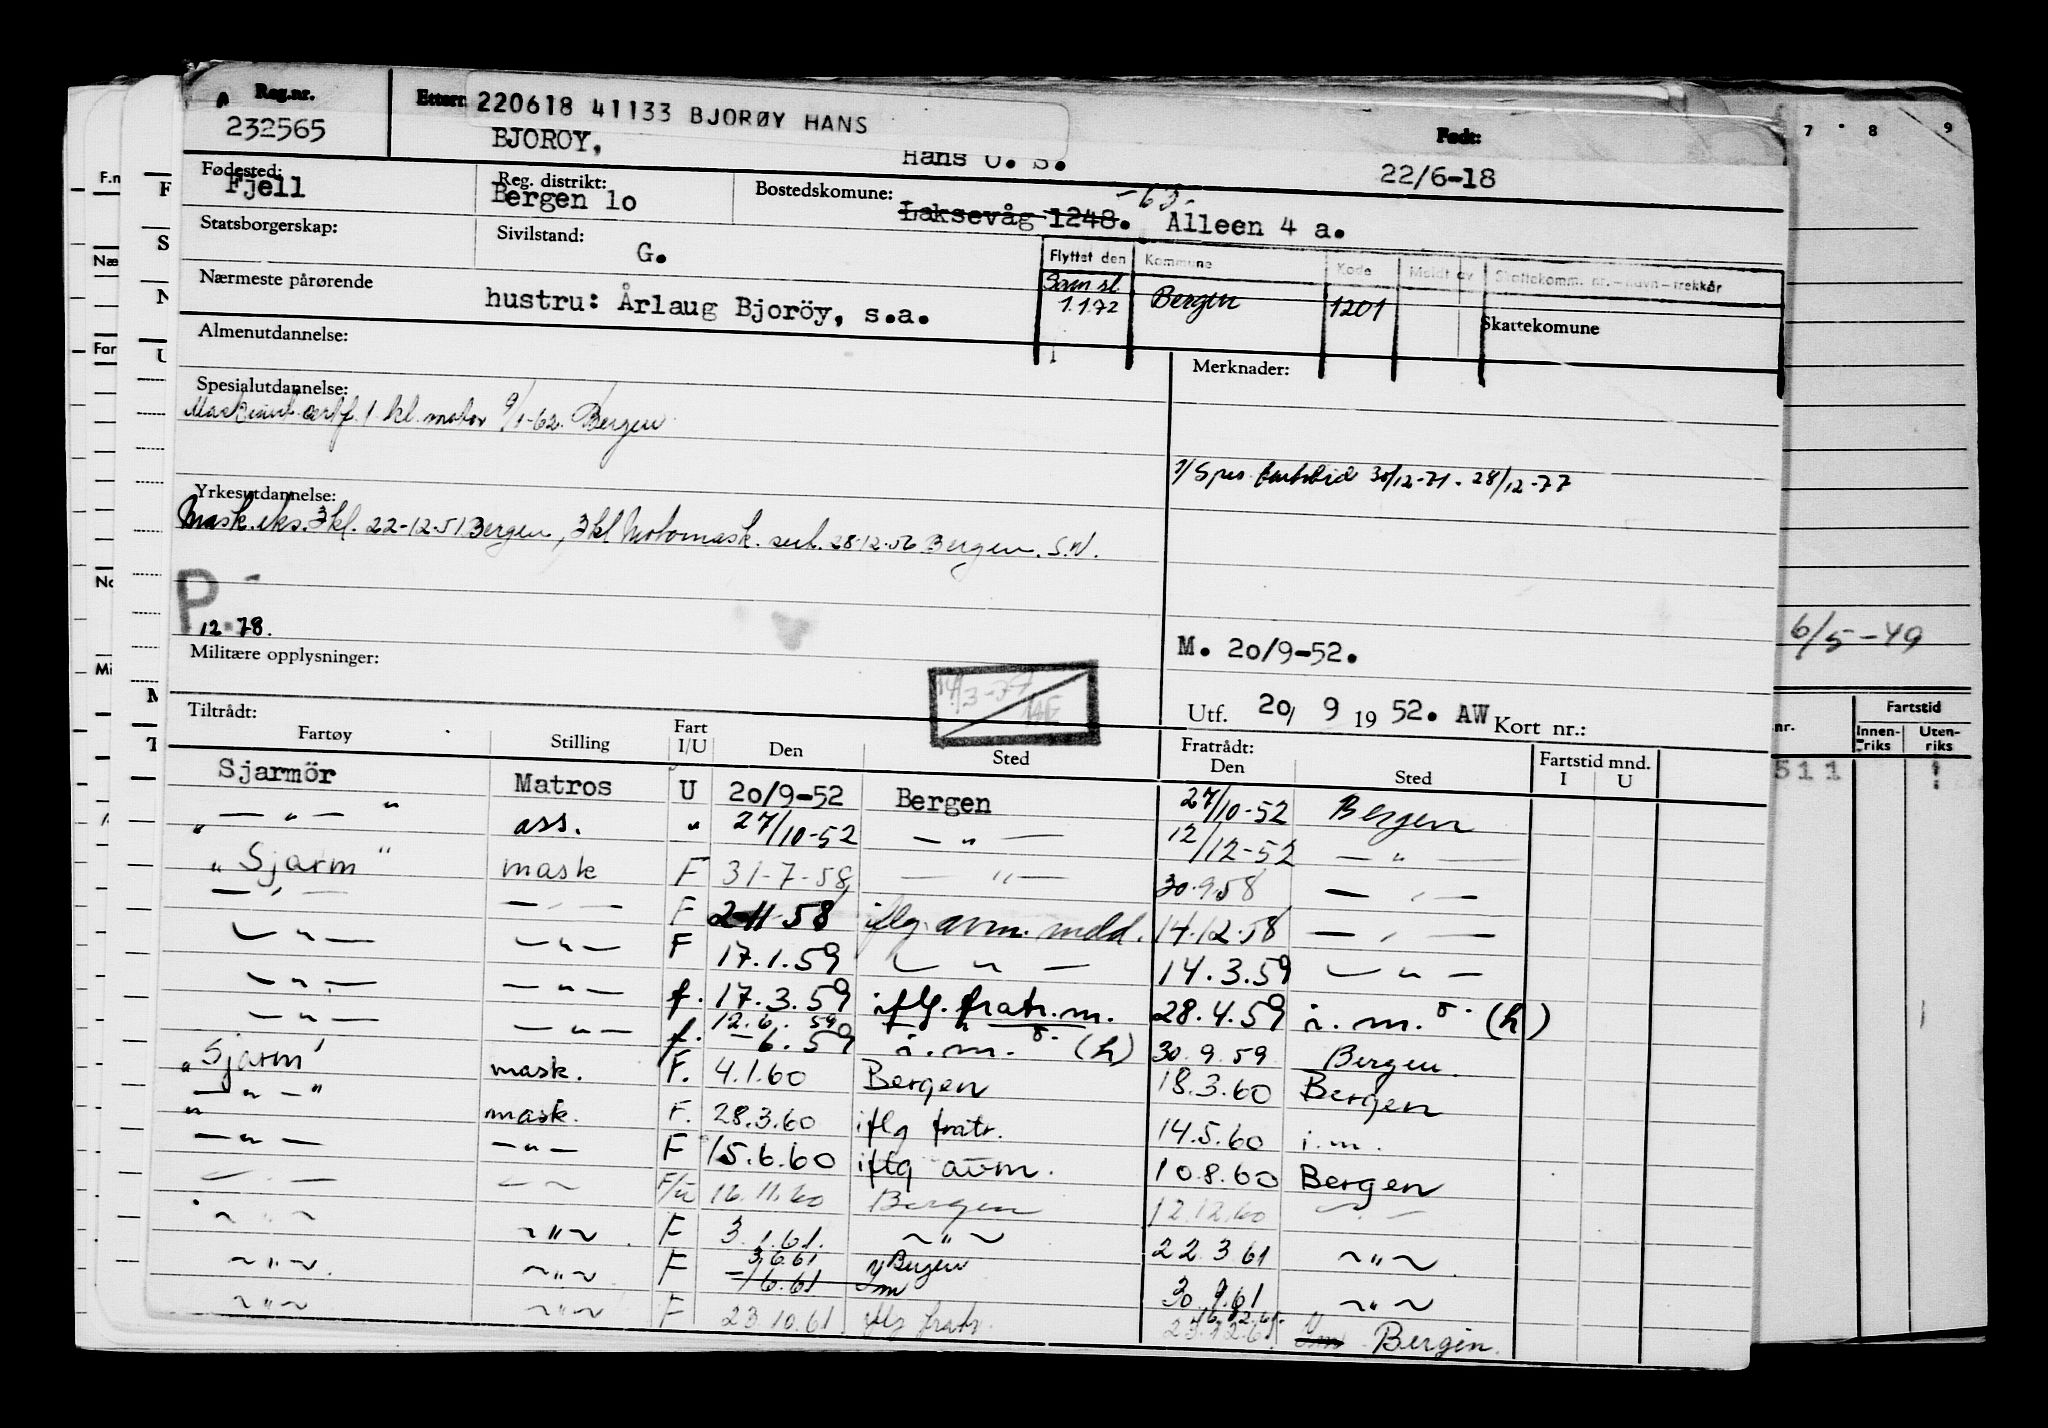 Reg.nr. Ettern 220618 41133 BJORØY HANS Født:
232565 BJOROY, Hans O. S. 22/6-18
Fødested: Reg. distrikt: Bostedskomune: -63-
Fjell Bergen 10 Laksevåg 1248. Alleen 4 a.
Statsborgerskap: Sivilstand: G.
Flyttet den Kommune Kode Meldt av Skattekomm. nr.-navn-trekkår
Nærmeste pårørende hustru: Årlaug Bjoröy, s.a.
Sam sl 1.1.72 Bergen 1201 Skattekomune
Almenutdannelse: Merknader:
Spesialutdannelse:
Maskinist certf. 1 kl. motor 9/1-62. Bergen
1/ Spes. fartstid 30/12-71 - 28/12-77
Yrkesutdannelse:
Mask.eks. 3kl. 22-12-51 Bergen, 3kl Motormask. sert. 28-12-56 Bergen. S.N.
P -
12-78.
Militære opplysninger: M. 20/9-52.
14/3-77
Utf. 20/ 9 19 52. AW Kort nr.:
Tiltrådt: Fratrådt: Fartstid mnd.
Fartøy Stilling Fart I/U Den Sted Den Sted I U
Sjarmör Matros U 20/9-52 Bergen 27/10-52 Bergen
" — " — " ass. " 27/10-52 — " — 12/12-52 — " —
"Sjarm" mask F 31-7-58 — " — 30.9.58 — " —
— " — — " — F 2-11-58 iflg. avm. meld. 14.12.58 — " —
— " — — " — F 17.1.59 — " — 14.3.59 — " —
— " — — " — f. 17.3.59 iflg. fratr.m. 28.4.59 i.m. (h)
12.6.59
— " — — " — f. -6.59 i.m. (h) 30.9.59 Bergen.
"Sjarm" mask. F. 4.1.60 Bergen 18.3.60 Bergen
" — " — " mask. F. 28.3.60 iflg fratr. 14.5.60 i.m.
— " — — " — F 15.6.60 iflg avm. 10.8.60 Bergen
— " — — " — F/u 16.11.60 Bergen 12.12.60 — " —
— " — — " — F 3.1.61. — " — 22.3.61 — " —
3.6.61 Bergen
— " — — " — F -/6.61 im 30.9.61 — " —
16.12.61.
— " — — " — F 23.10.61 iflg fratr. 23.12.61. im Bergen.
7 8 9
6/5-49
Fartstid
nr. Innen-riks Uten-riks
511
F.n
Næ
Far
No
Mi
F
S
N
U
M
T